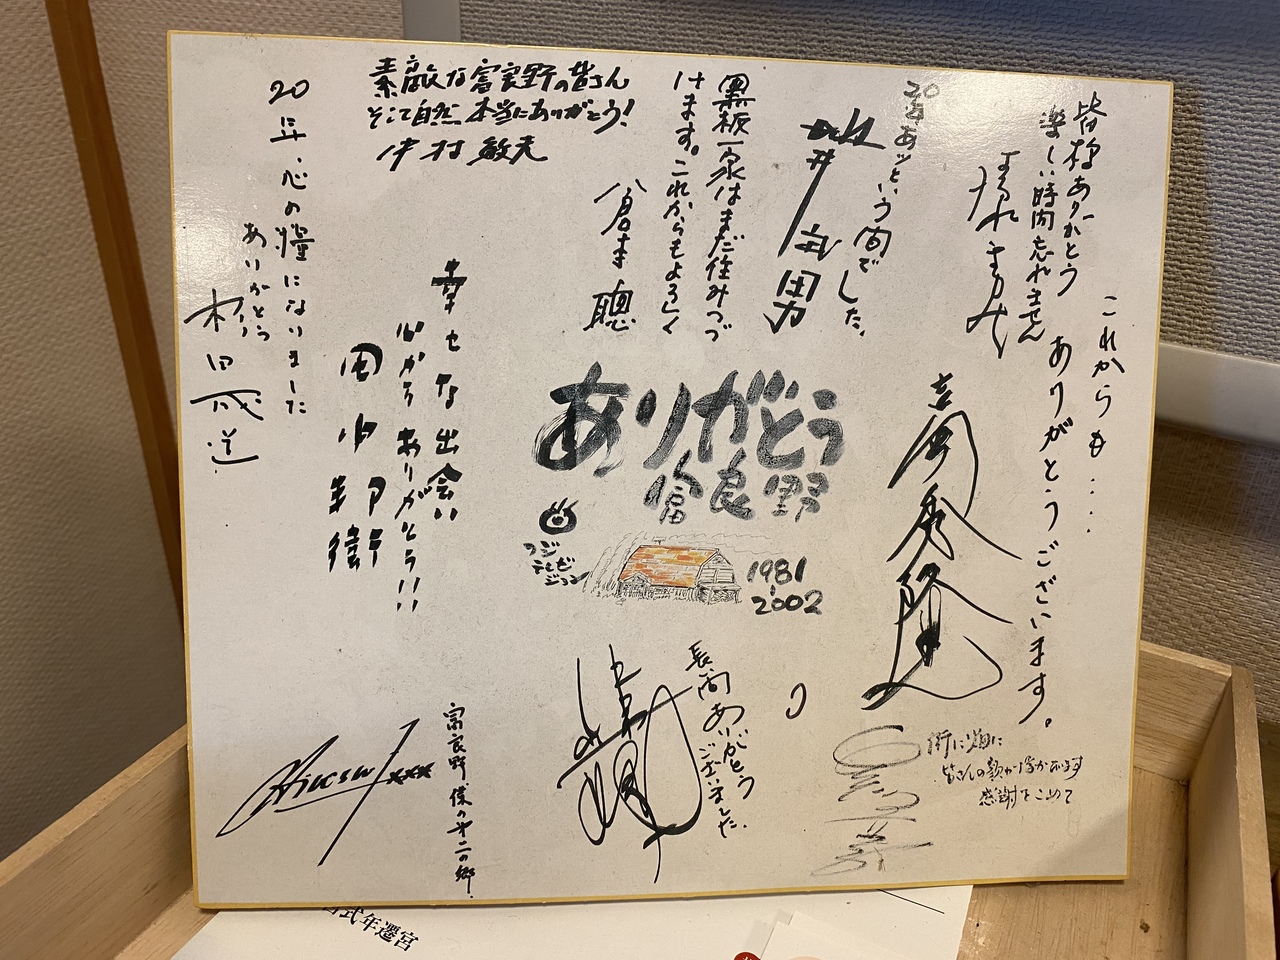 皆様ありがとう
楽しい時間忘れません
これからも....
ありがとうございます。
20年あッという間でした。
黒板一家はまだ住みつづ
けます。これからもよろしく
倉本聰
素敵な富良野の皆さん
そして自然、本当にありがとう!
中村敏夫
20年、心の糧になりました
ありがとう
杉田成道
幸せな出会い
心からありがとう!!
田中邦衛
ありがとう
富良野
フジ
テレビ
ジョン
1981
2002
吉岡秀隆
長い間ありがとう
ございました。
富良野 僕の第二の郷
街に畑に
皆さんの顔が浮かびます
感謝をこめて
式年遷宮